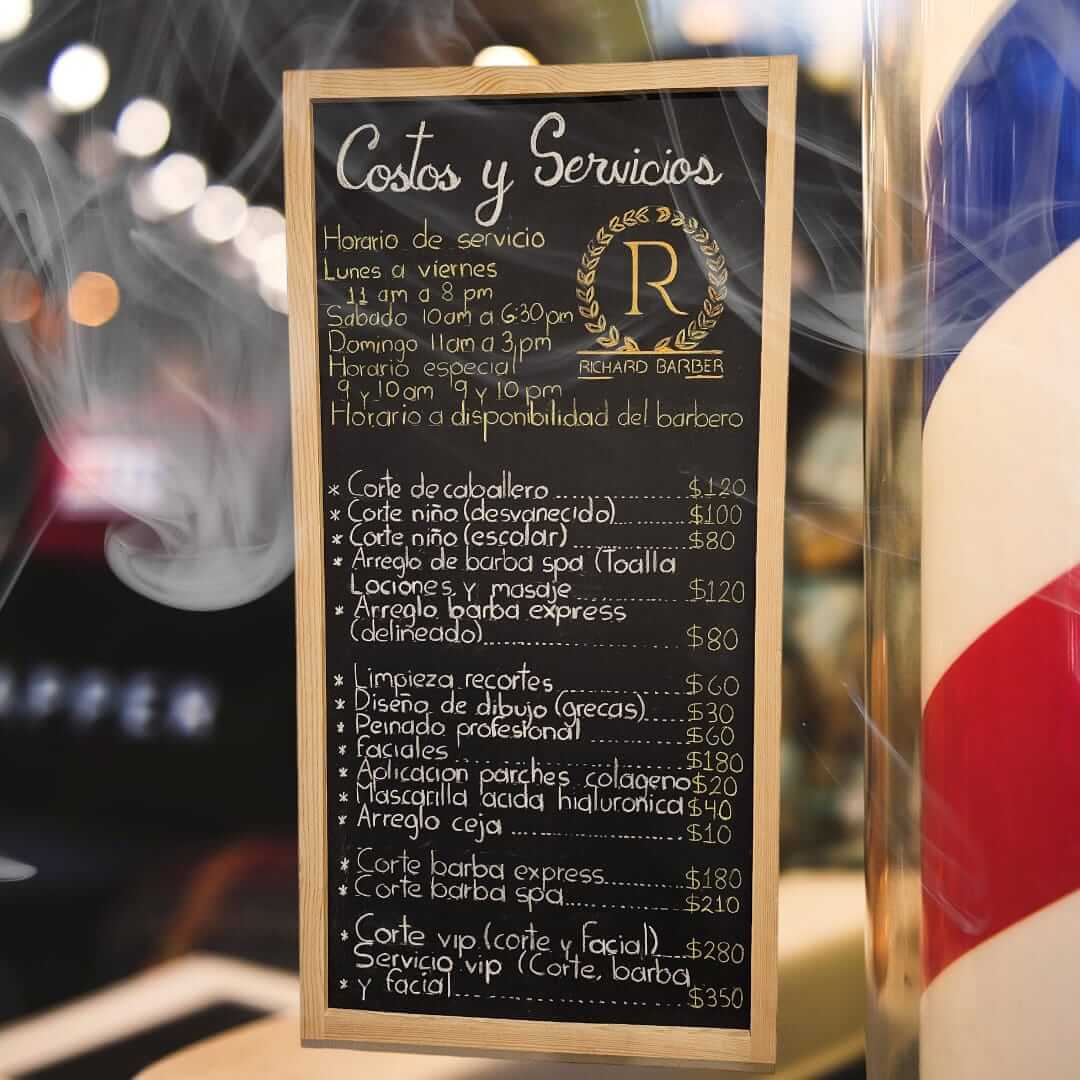 Costos y Servicios
Horario de servicio
Lunes a viernes
11 am a 8 pm
Sabado 10am a 6:30pm
Domingo 11am a 3pm
Horario especial
9 y 10am 9 y 10 pm
Horario a disponibilidad del barbero
R
RICHARD BARBER
* Corte de caballero ................ $120
* Corte niño (desvanecido) ........ $100
* Corte niño (escolar) ............... $80
* Arreglo de barba spa (Toalla
Lociones y masaje ............... $120
* Arreglo barba express
(delineado) ........................ $80
* Limpieza recortes ................ $60
* Diseño de dibujo (grecas) ..... $30
* Peinado profesional ............. $60
* faciales ........................... $180
* Aplicacion parches colageno $20
* Mascarilla acida hialuronica $40
* Arreglo ceja ...................... $10
* Corte barba express .......... $180
* Corte barba spa ................ $210
* Corte vip (corte y facial) ... $280
Servicio vip (Corte, barba
* y facial ........................... $350